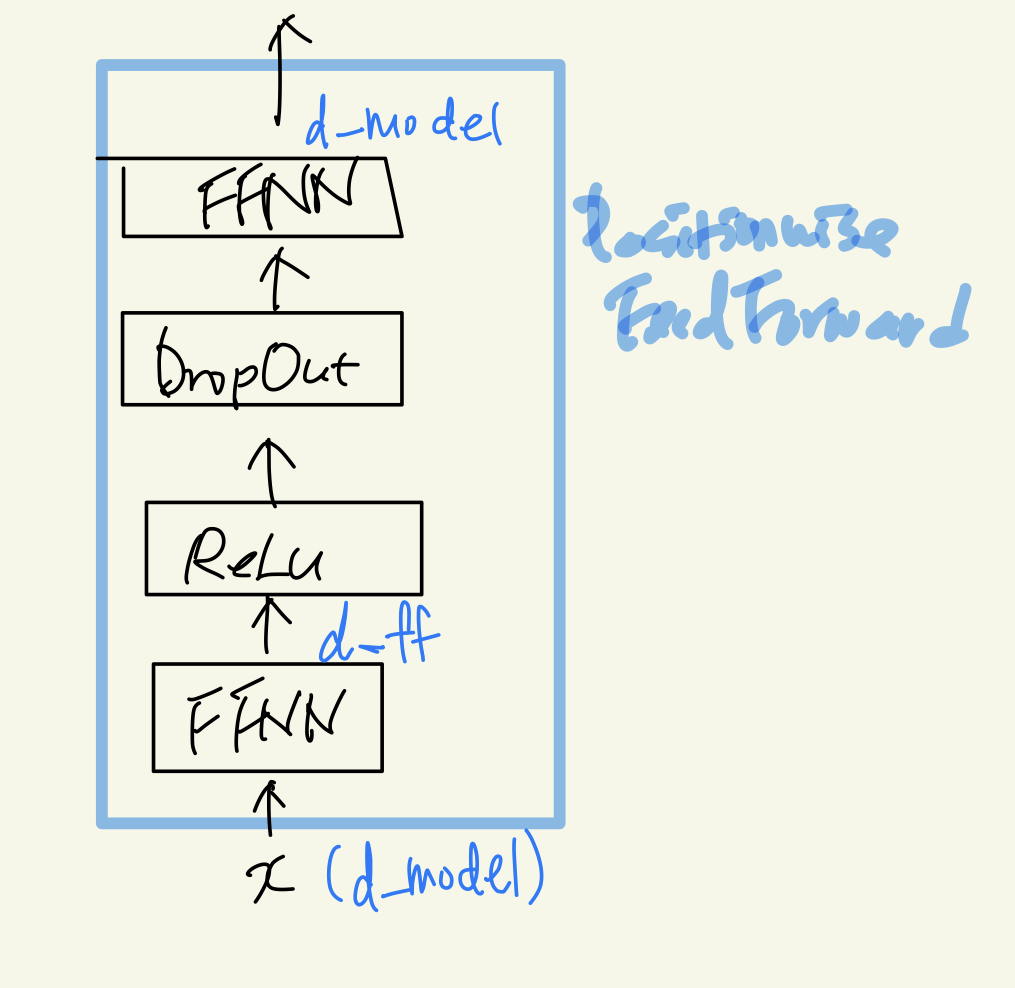 d_model
FFNN
Positionwise
FeedForward
DropOut
ReLu
d_ff
FFNN
x (d_model)